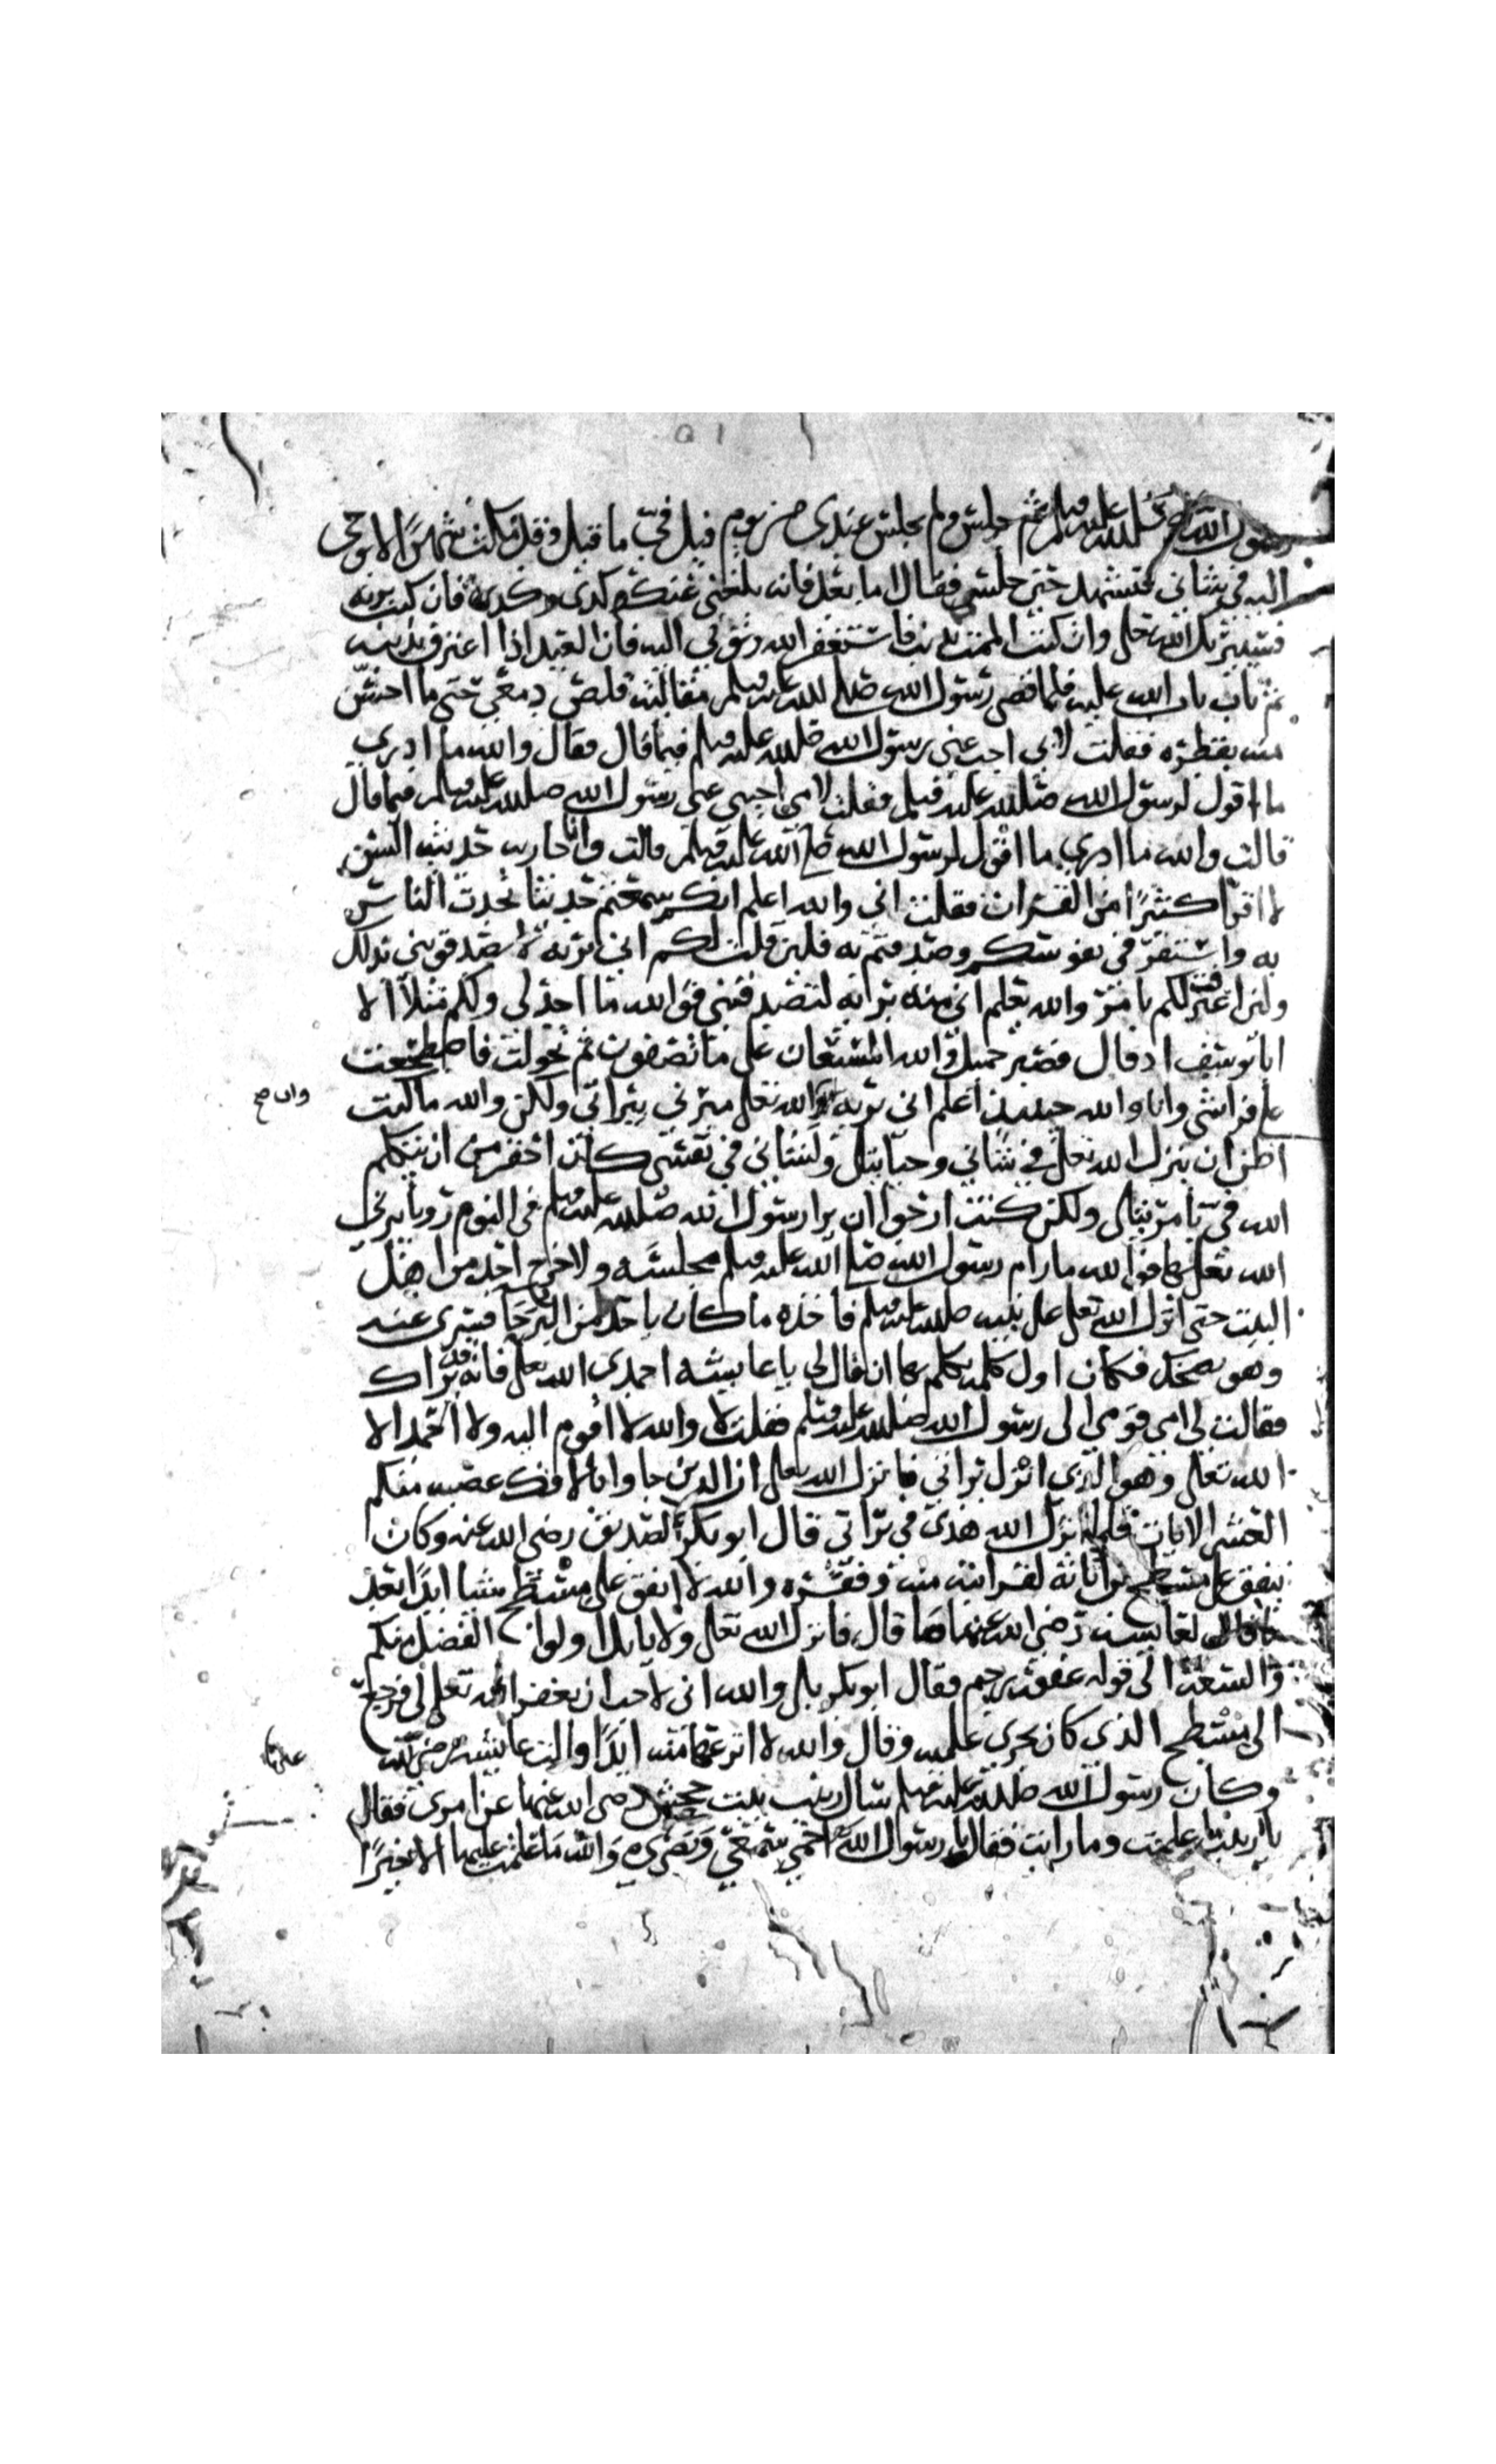 رسول الله صلى الله عليه وسلم ثم جلس ولم يجلس عندي من يوم قيل في ما قيل وقد مكث شهرا لا يوحى
اليه في شاني فتشهد حتى جلس فقال اما بعد فانه بلغني عنك كدى وكدى فان كنت بريه
فسيبريك الله تعلى وان كنت الممت بذنب فاستغفر الله وتوبي اليه فان العبد اذا اعترف بذنبه
ثم تاب تاب الله عليه فلما قضى رسول الله صلى الله عليه وسلم مقالته قلص دمعي حتى ما احس
منه بقطره فقلت لابي اجب عني رسول الله صلى الله عليه وسلم فيما قال فقال والله ما ادري
ما اقول لرسول الله صلى الله عليه وسلم فقلت لامي اجيبي عني رسول الله صلى الله عليه وسلم فيما قال
قالت والله ما ادري ما اقول لرسول الله صلى الله عليه وسلم قالت وانا جاريه حديثه السن
لا اقرا كثيرا من القران فقلت اني والله اعلم انكم سمعتم حديثا تحدث الناس
به واستقر في نفوسكم وصدقتم به فلين قلت لكم اني بريه لا تصدقوني بذلك
ولين اعترفت لكم بامر والله يعلم اني منه بريه لتصدقني فوالله ما اجد لي ولكم مثلا الا
ابا يوسف اذ قال فصبر جميل والله المستعان على ما تصفون ثم تحولت فاضطجعت
على فراشي وانا والله حينيذ اعلم اني بريه والله تعلى مبرئي ببراتي ولكن والله ما كنت
وان صح
اظن ان ينزل الله تعلى في شاني وحيا يتلى ولشاني في نفسي كان احقر من ان يتكلم
الله في بامر يتلى ولكن كنت ارجوا ان يرا رسول الله صلى الله عليه وسلم في النوم رويا يبريني
الله تعلى بها فوالله ما رام رسول الله صلى الله عليه وسلم مجلسه ولا خرج احد من اهل
البيت حتى انزل الله تعلى على نبيه صلى الله عليه وسلم فاخذه ما كان ياخذه من البرحا فسري عنه
وهو يضحك فكان اول كلمه تكلم بها ان قال لي يا عايشه احمدي الله تعلى فانه قد براك
فقالت لي امي قومي الى رسول الله صلى الله عليه وسلم فقلت لا والله لا اقوم اليه ولا احمد الا
الله تعلى وهو الذي انزل براتي فانزل الله تعلى ان الدين جاوا بالافك عصبه منكم
العشر الايات فلما انزل الله هذى في براتي قال ابو بكر الصديق رضي الله عنه وكان
ينفق على مسطح بن اثاثه لقرابته منه وفقره والله لا انفق على مسطح شيا ابدا بعد
ما قال لعايشه رضي الله عنها قال فانزل الله تعلى ولا ياتل اولوا الفضل منكم
والسعه الى قوله غفور رحيم فقال ابو بكر بلى والله اني لاحب ان يغفر الله تعلى لي فرجع
الى مسطح الذي كان يجري عليه وقال والله لا انزعها منه ابدا قالت عايشه رضي الله
وكان رسول الله صلى الله عليه وسلم سال زينب بنت جحش رضي الله عنها عن امري فقال
يا زينب ما علمت وما رايت فقالت يا رسول الله احمي سمعي وبصري والله ما علمت عليها الا خيرا